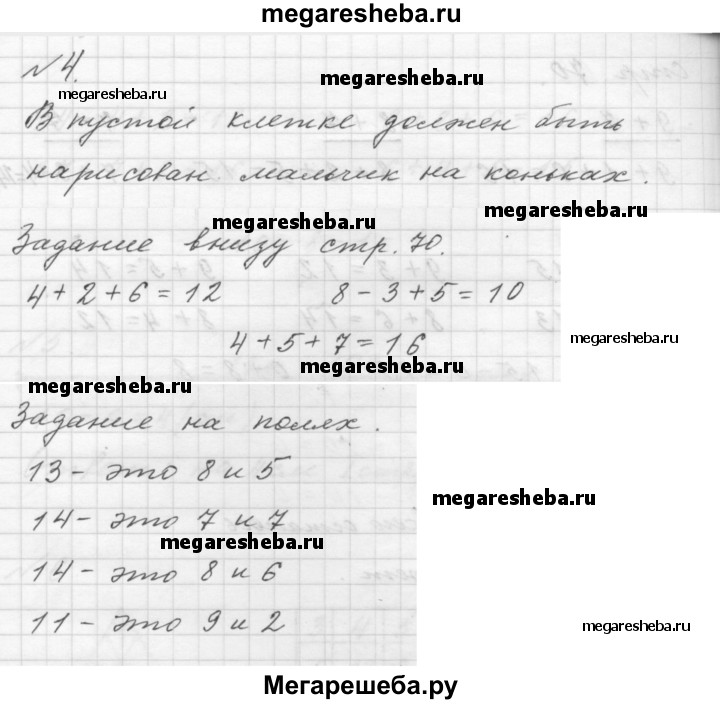 megaresheba.ru
№ 4.
megaresheba.ru
megaresheba.ru
В пустой клетке должен быть
нарисован мальчик на коньках.
megaresheba.ru
megaresheba.ru
Задание внизу стр. 70.
4 + 2 + 6 = 12 8 - 3 + 5 = 10
4 + 5 + 7 = 16
megaresheba.ru
megaresheba.ru
megaresheba.ru
Задание на полях.
13 - это 8 и 5
megaresheba.ru
14 - это 7 и 7
megaresheba.ru
14 - это 8 и 6
11 - это 9 и 2
megaresheba.ru
Мегарешеба.ру